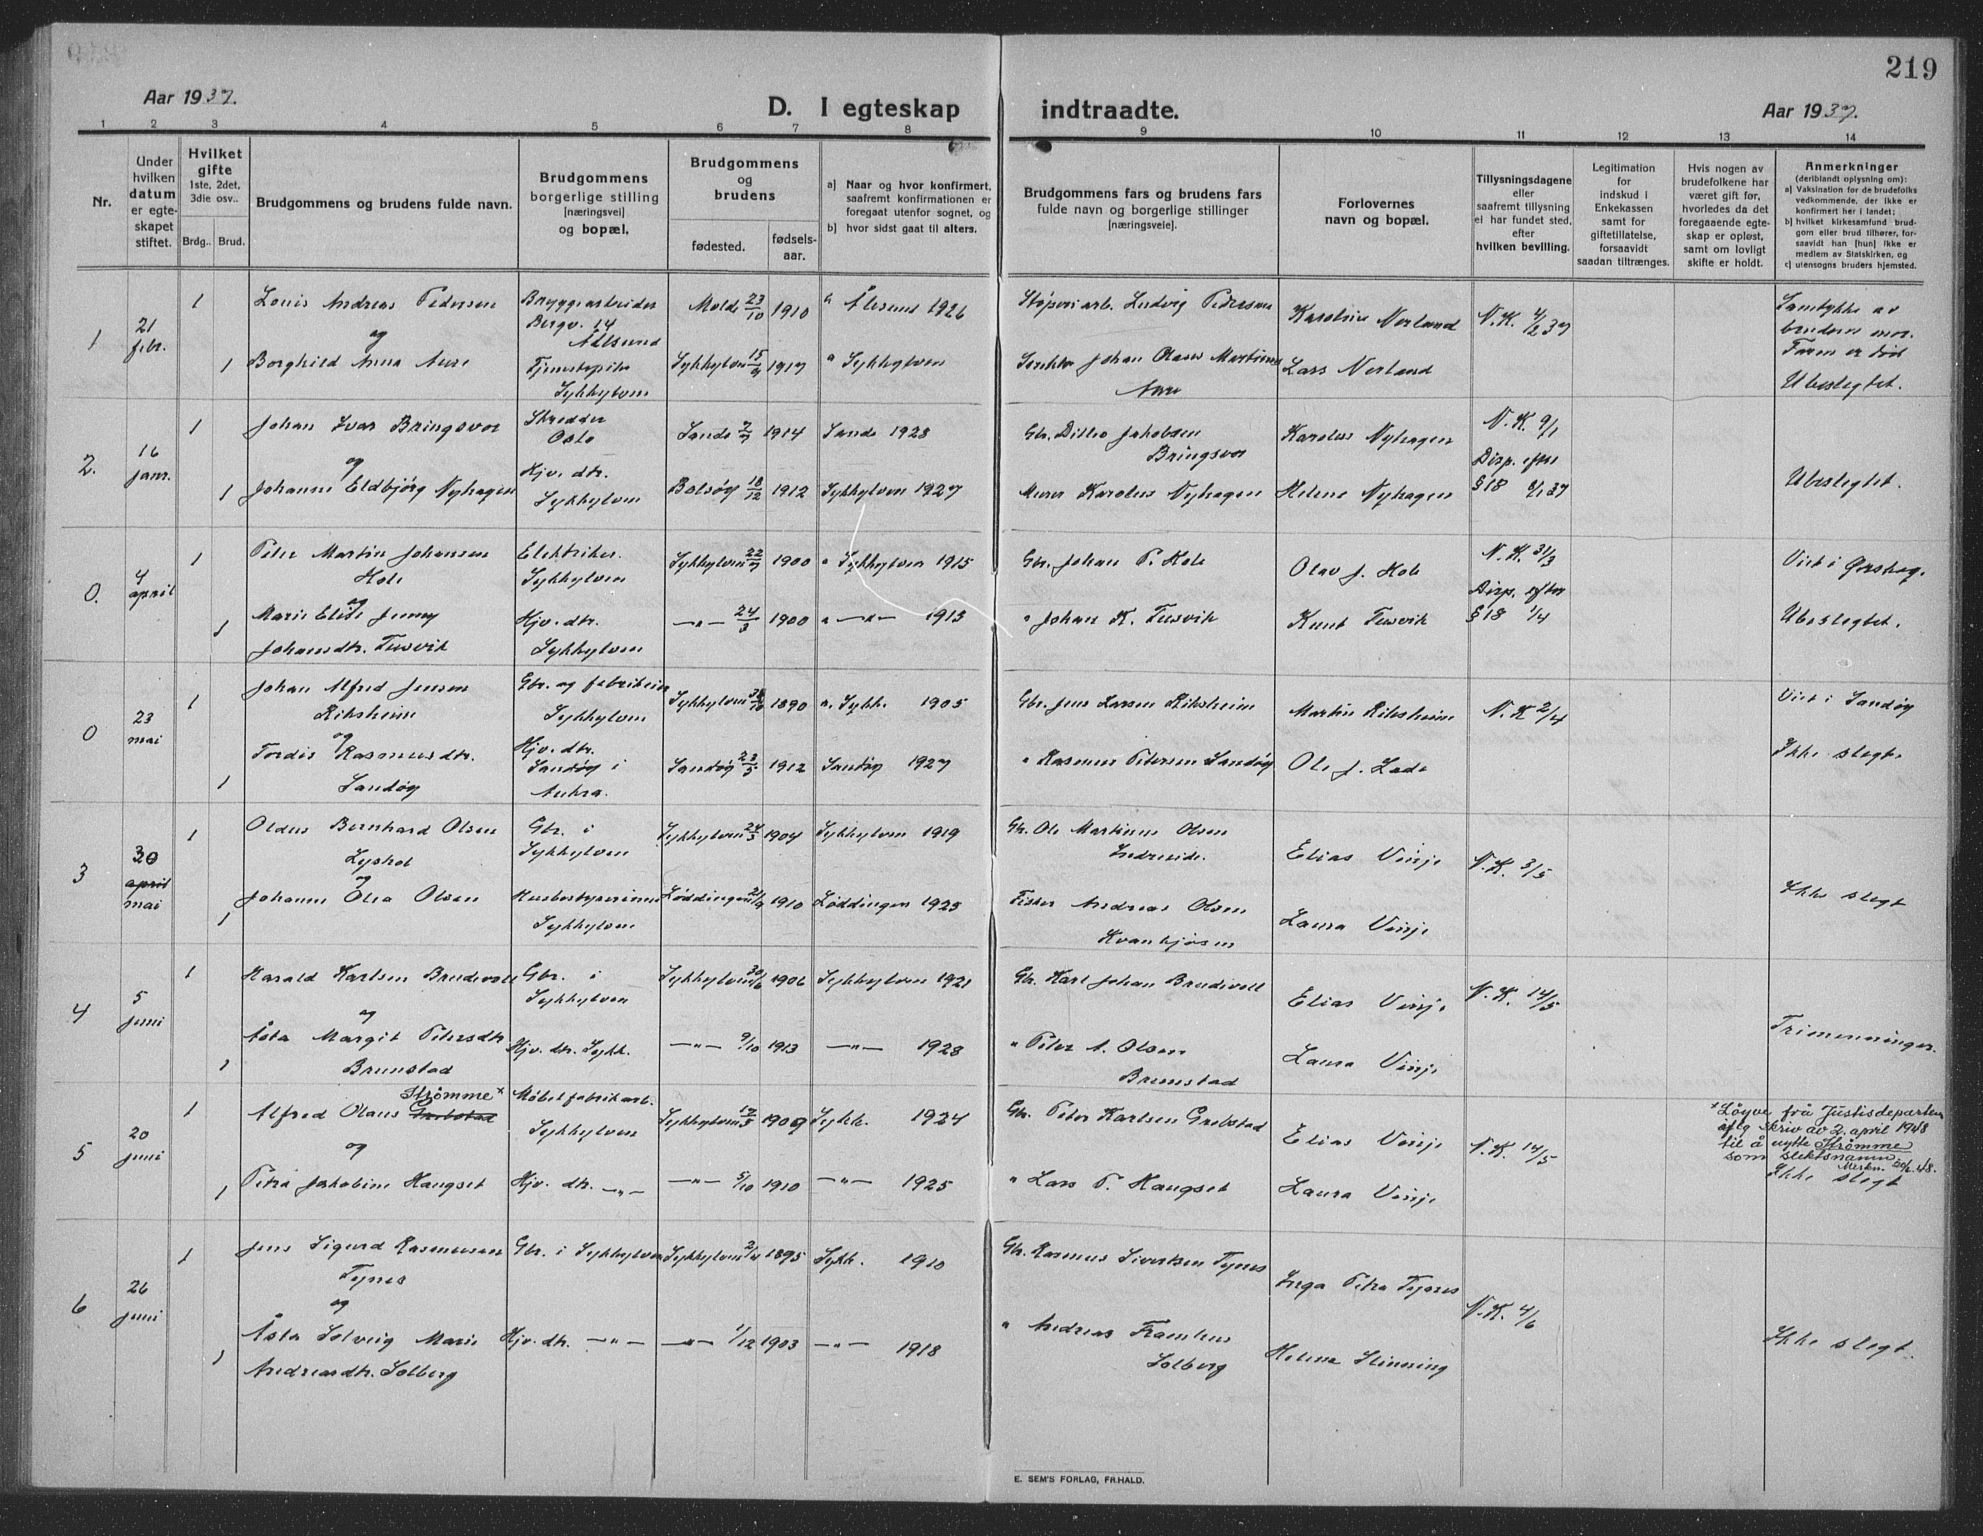 219
Aar 1937.
D. I egteskap indtraadte.
Aar 1937.
1 2 3 4 5 6 7 8 9 10 11 12 13 14
Nr.
Under hvilken datum er egte- skapet stiftet.
Hvilket gifte 1ste, 2det, 3die osv..
Brdg.. Brud.
Brudgommens og brudens fulde navn.
Brudgommens borgerlige stilling [næringsvei] og bopæl.
Brudgommens og brudens
fødested. fødsels- aar.
a] Naar og hvor konfirmert, saafremt konfirmationen er foregaat utenfor sognet, og
b] hvor sidst gaat til alters.
Brudgommens fars og brudens fars fulde navn og borgerlige stillinger [næringsveie].
Forlovernes navn og bopæl.
Tillysningsdagene eller saafremt tillysning ei har fundet sted, efter hvilken bevilling.
Legitimation for indskud i Enkekassen samt for giftetillatelse, forsaavidt saadan tiltrænges.
Hvis nogen av brudefolkene har været gift før, hvorledes da det foregaaende egte- skap er opløst, samt om lovligt skifte er holdt.
Anmerkninger (deriblandt oplysning om):
a) Vaksination for de brudefolks vedkommende, der ikke er konfirmert her i landet;
b) hvilket kirkesamfund brud- gom eller brud tilhører, for- saavidt han [hun] ikke er medlem av Statskirken, og
c) utensogns bruders hjemsted.
1 21 febr. 1 Louis Andreas Pedersen Bryggearbeider Bergv. 14 Ålesund Molde 23/10 1910 a Ålesund 1926 Støperiarb. Ludvig Pedersen Karoline Norland N.K. 4/2 37 Samtykke av brudens mor. Faren er død
og
1 Borghild Anna Aure Tjenestepike Sykkylven Sykkylven 15/9 1917 a Sykkylven Johan Olaus Martinus Aure Lars Norland Ubeslegtet.
2. 16 janr. 1 Johan Ivar Bringsvor Skredder Oslo Sande 7/7 1914 Sande 1928 Gbr. Ditlev Jakobsen Bringsvor Karolus Nyhagen N.K. 9/1
og
1 Johanne Eldbjørg Nyhagen Hjv. dtr. Sykkylven Bolsøy 18/12 1912 Sykkylven 1927 Murer Karolus Nyhagen Helene Nyhagen Disp. efter § 18 9/1 37 Ubeslegtet.
0. 4 april 1 Peter Martin Johansen Hole Elektriker. Sykkylven Sykkylven 22/7 1900 a Sykkylven 1915 Gbr. Johan P. Hole Olav J. Hole N.K. 31/3 Viet i Ørskog.
og
1 Marie Elise Jenny Johansdtr. Tusvik Hjv. dtr. Sykkylven —„— 24/3 1900 a —„— 1915 " Johan K. Tusvik Knut Tusvik Disp. efter § 18 1/4 Ubeslegtet.
0 23 mai 1 Johan Alfred Jensen Riksheim Gbr. og fabrikeier Sykkylven Sykkylven 1890 a. Sykk. 1905 Gbr. Jens Larsen Riksheim Martin Riksheim N.K 2/4 Viet i Sandøy
og
1 Tordis Rasmusdtr. Sandøy Hjv. dtr. Sandøy i Aukra. Sandøy 23/5 1912 Sandøy 1927 " Rasmus Petersen Sandøy Ole J. Lade Ikke slegt.
3 30 april mai 1 Oldus Bernhard Olsen Lyshol Gbr. i Sykkylven Sykkylven 24/3 1904 Sykkylven 1919 Gbr. Ole Martinus Olsen Indreeide. Elias Vinje N.K. 3/5
og
1 Johanne Olea Olsen Husbestyrerinne Sykkylven Løddingen 21/9 1910 Løddingen 1925 Fisker Andreas Olsen Kvankjosen Laura Vinje Ikke slegt
4 5 juni 1 Harald Karlsen Brudevoll Gbr. i Sykkylven Sykkylven 30/6 1906 Sykkylven 1921 Gbr. Karl Johan Brudevoll Elias Vinje N.K. 14/5
og
1 Åsta Margit Petersdtr. Brunstad Hjv. dtr. Sykk. —„— 9/10 1913 —„— 1928 " Peter A. Olsen Brunstad Laura Vinje Trimenninger.
5 20 juni 1 Alfred Olaus Grebstad Strømme x Møbelfabrikarb. Sykkylven Sykkylven 17/3 1909 Sykk. 1924 Gbr. Peter Karlsen Grebstad Elias Vinje N.K. 14/5 x Løyve frå Justisdepartem ifølg skriv av 2. april 1948 til å nytte Strømme som slektsnamn. Merkn. 20/4 48.
og
1 Petra Jakobine Haugset Hjv. dtr. —„— —„— 5/10 1910 —„— 1925 " Lars P. Haugset Laura Vinje Ikke slegt
6 26 juni 1 Jens Sigurd Rasmussen Tynes Gbr. i Sykkylven Sykkylven 2/4 1895 Sykk. 1910 Gbr. Rasmus Sivertsen Tynes Inga Petra Tynes N.K. 4/6
og
1 Åsta Solveig Marie Andreasdtr. Solberg Hjv. dtr. —„— —„— 1/12 1903 —„— 1918 " Andreas Framhus Solberg Helene Stinning Ikke slegt.
E. SEM'S FORLAG, FR.HALD.